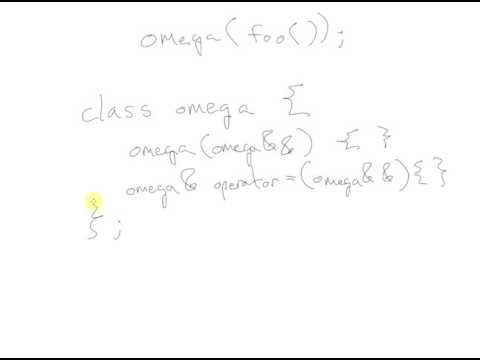 omega(foo());
class omega {
omega(omega&&) { }
omega& operator=(omega&&){ }
};